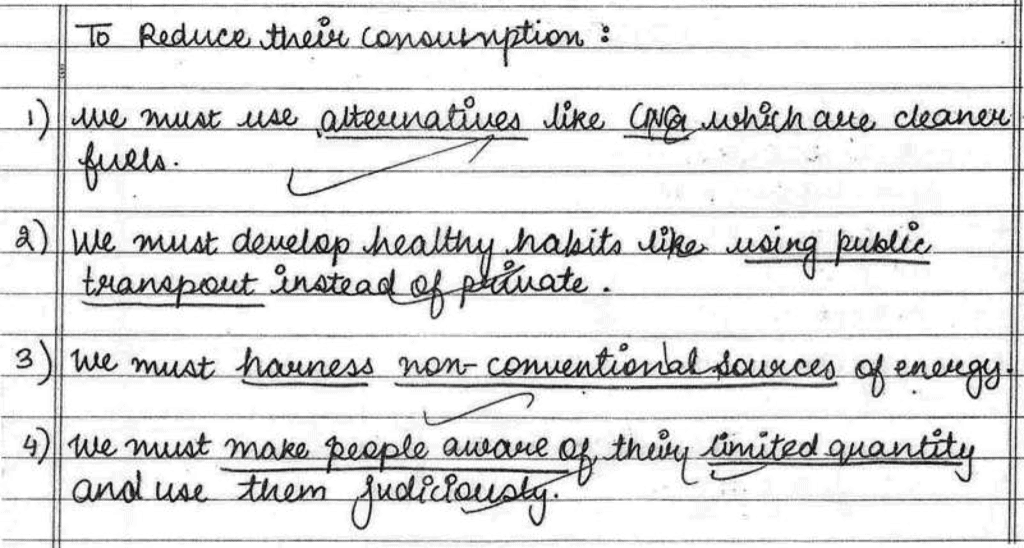 To Reduce their consumption :
1) We must use alternatives like CNG which are cleaner
fuels.
2) We must develop healthy habits like using public
transport instead of private.
3) We must harness non-conventional sources of energy.
4) We must make people aware of their limited quantity
and use them judiciously.